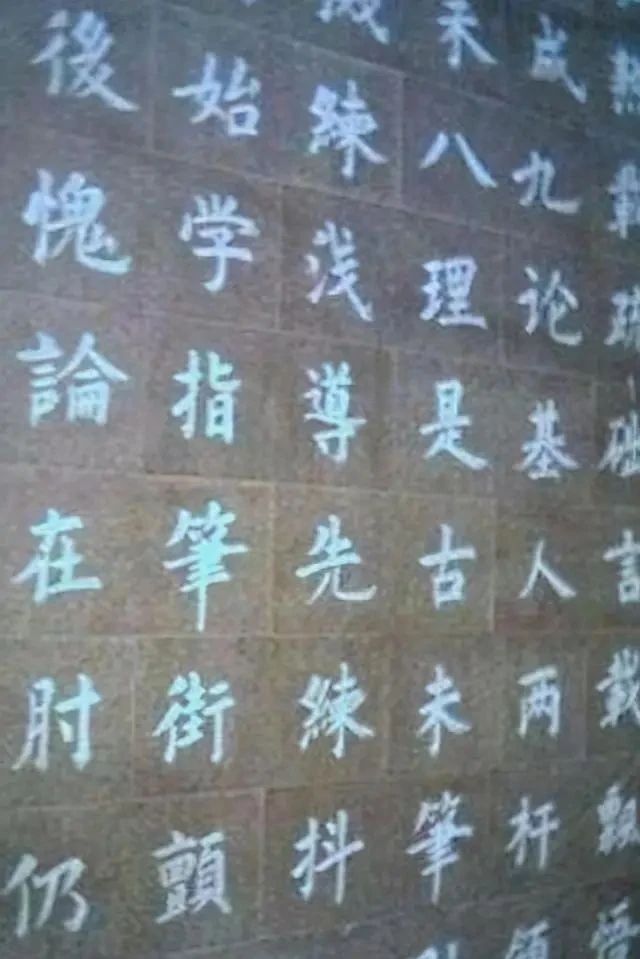 未成熟
後始練八九載
愧学浅理论疏
論指導是基础
在筆先古人言
肘街練未两載
仍顫抖筆杆飄
領悟